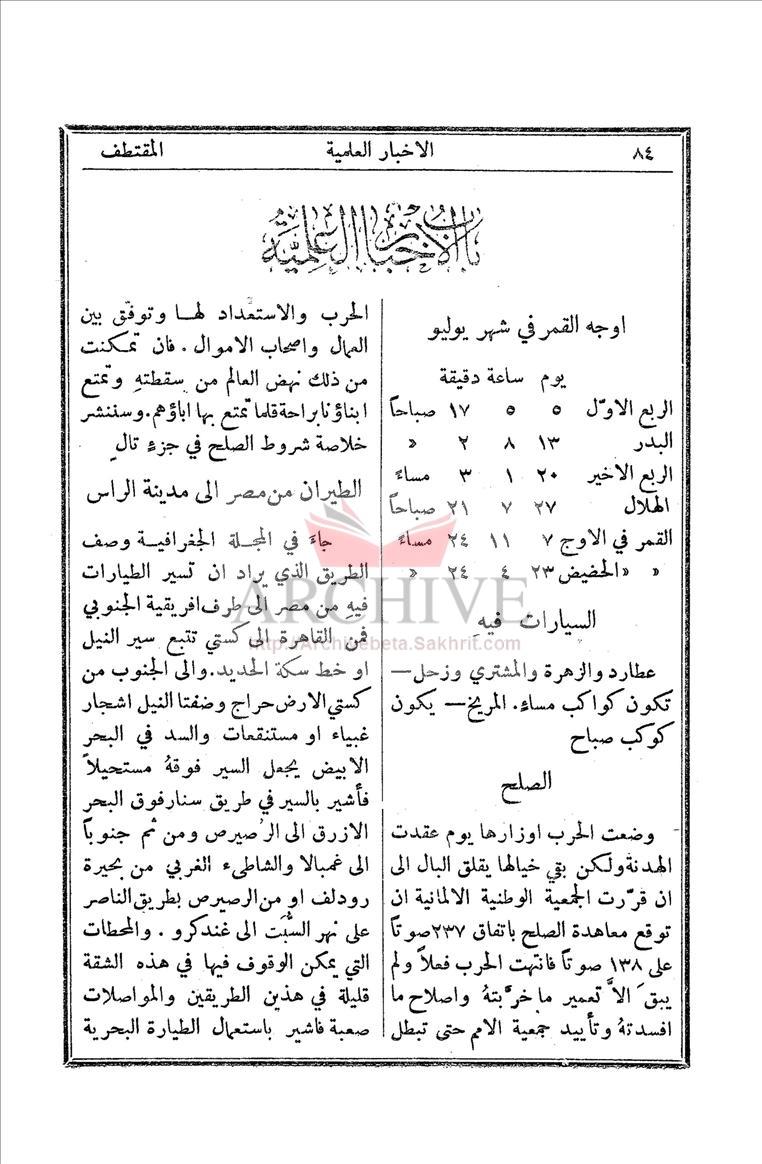 ٨٤
الاخبار العلمية
المقتطف
باب الاخبار العلمية
اوجه القمر في شهر يوليو
يوم ساعة دقيقة
الربع الاوّل ٥ ٥ ١٧ صباحاً
البدر ١٣ ٨ ٢ «
الربع الاخير ٢٠ ١ ٣ مساءً
الهلال ٢٧ ٧ ٢١ صباحاً
القمر في الاوج ٧ ١١ ٢٤ مساءً
« «الحضيض ٢٣ ٤ ٢٤ «
السيارات فيهِ
عطارد والزهرة والمشتري وزحل—
تكون كواكب مساء. المريخ— يكون
كوكب صباح
الصلح
وضعت الحرب اوزارها يوم عقدت
الهدنة ولكن بقي خيالها يقلق البال الى
ان قرّرت الجمعية الوطنية الالمانية ان
توقع معاهدة الصلح باتفاق ٢٣٧ صوتاً
على ١٣٨ صوتاً فانتهت الحرب فعلاً ولم
يبقَ الاَّ تعمير ما خرَّبتهُ واصلاح ما
افسدتهُ وتأييد جمعية الامم حتى تبطل
الحرب والاستعداد لهـا وتوفّق بين
العمال واصحاب الاموال . فان تمكنت
من ذلك نهض العالم من سقطتهِ وتمتع
ابناؤنا براحة قلما تمتع بها اباؤهم. وسننشر
خلاصة شروط الصلح في جزءٍ تالٍ
الطيران من مصر الى مدينة الراس
جاءَ في المجلة الجغرافية وصف
الطريق الذي يراد ان تسير الطيارات
فيهِ من مصر الى طرف افريقية الجنوبي
فمن القاهرة الى كستي تتبع سير النيل
او خط سكة الحديد. والى الجنوب من
كستي الارض حراج وضفتا النيل اشجار
غبياء او مستنقعات والسد في البحر
الابيض يجعل السير فوقهُ مستحيلاً
فأشير بالسير في طريق سنار فوق البحر
الازرق الى الرُصيرص ومن ثم جنوباً
الى غمبالا والشاطىء الغربي من بحيرة
رودلف او من الرصيرص بطريق الناصر
على نهر السُّبَت الى غندكرو . والمحطات
التي يمكن الوقوف فيها في هذه الشقة
قليلة في هذين الطريقين والمواصلات
صعبة فاشير باستعمال الطيارة البحرية
ARCHIVE
http://Archivebeta.Sakhrit.com